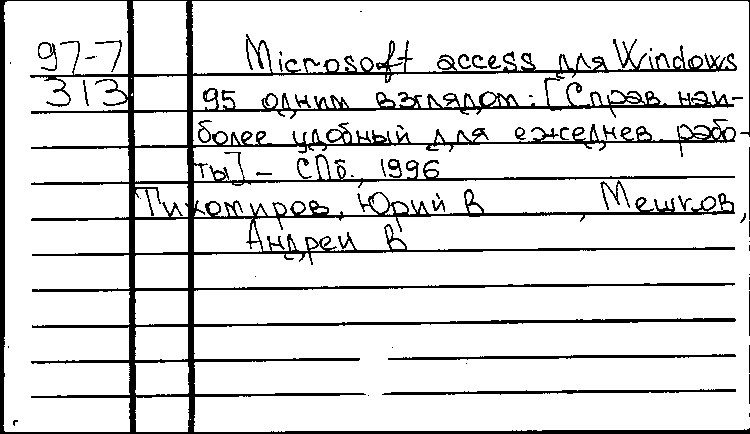 97-7 Microsoft access для Windows
313 95 одним взглядом: [Справ. наи-
более удобный для ежеднев. рабо-
ты] - СПб., 1996
Тихомиров, Юрий В , Мешков,
Андрей В